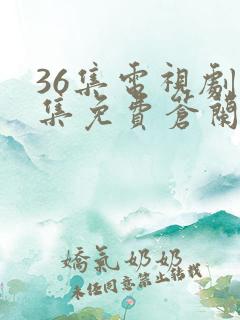 36集電視劇
集免費蒼蘭
嬌氣奶奶
未經同意禁止轉載